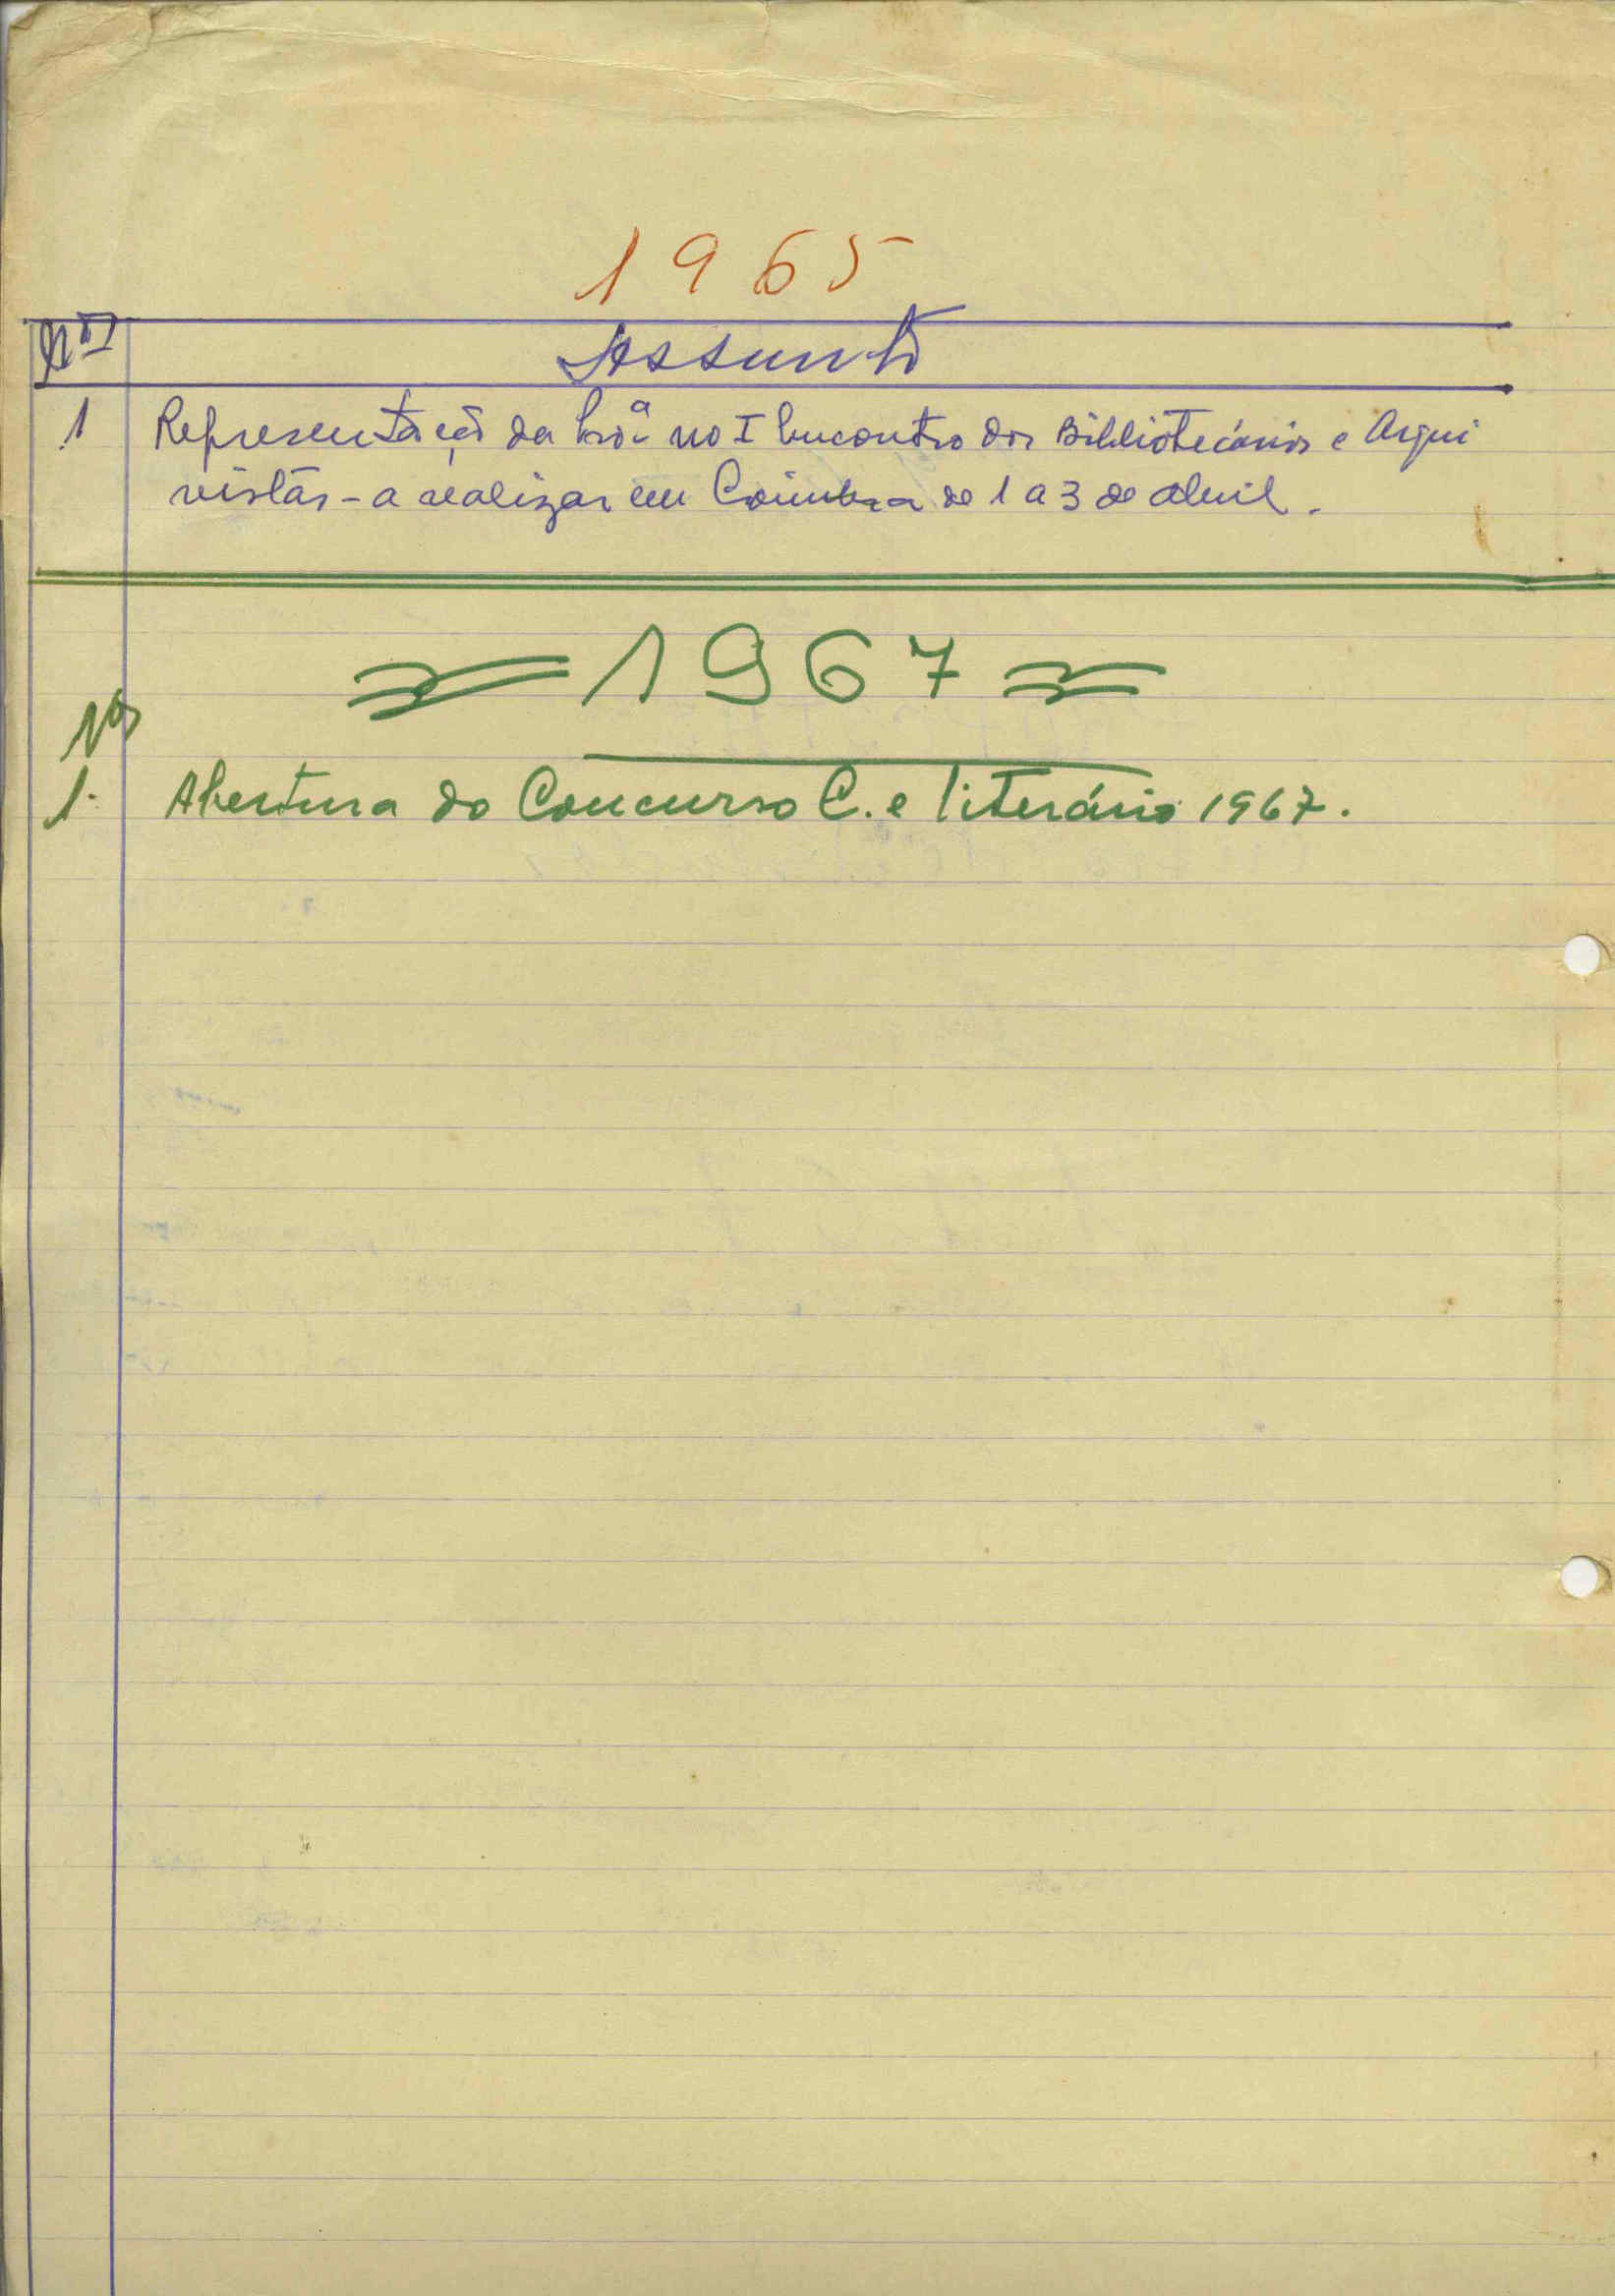 1965
Nos Assunto
1 Representação da no I Encontro dos Bibliotecários e Arqui
vistas - a realizar em Coimbra de 1 a 3 de abril.
1967
Nos
1. Abertura do Concurso C. e literário 1967.